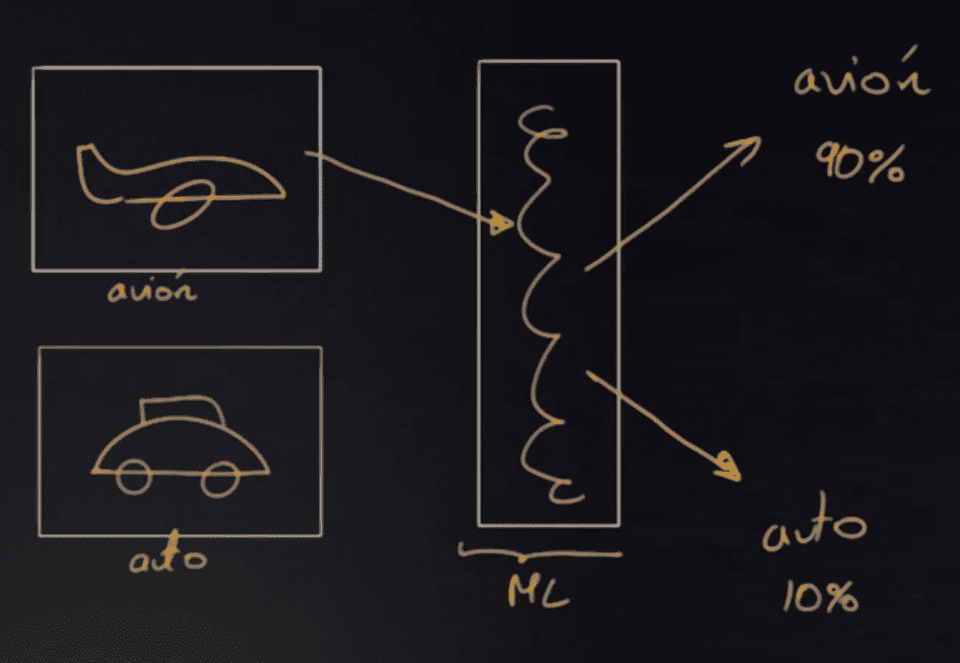 avión
auto
ML
avión
90%
auto
10%